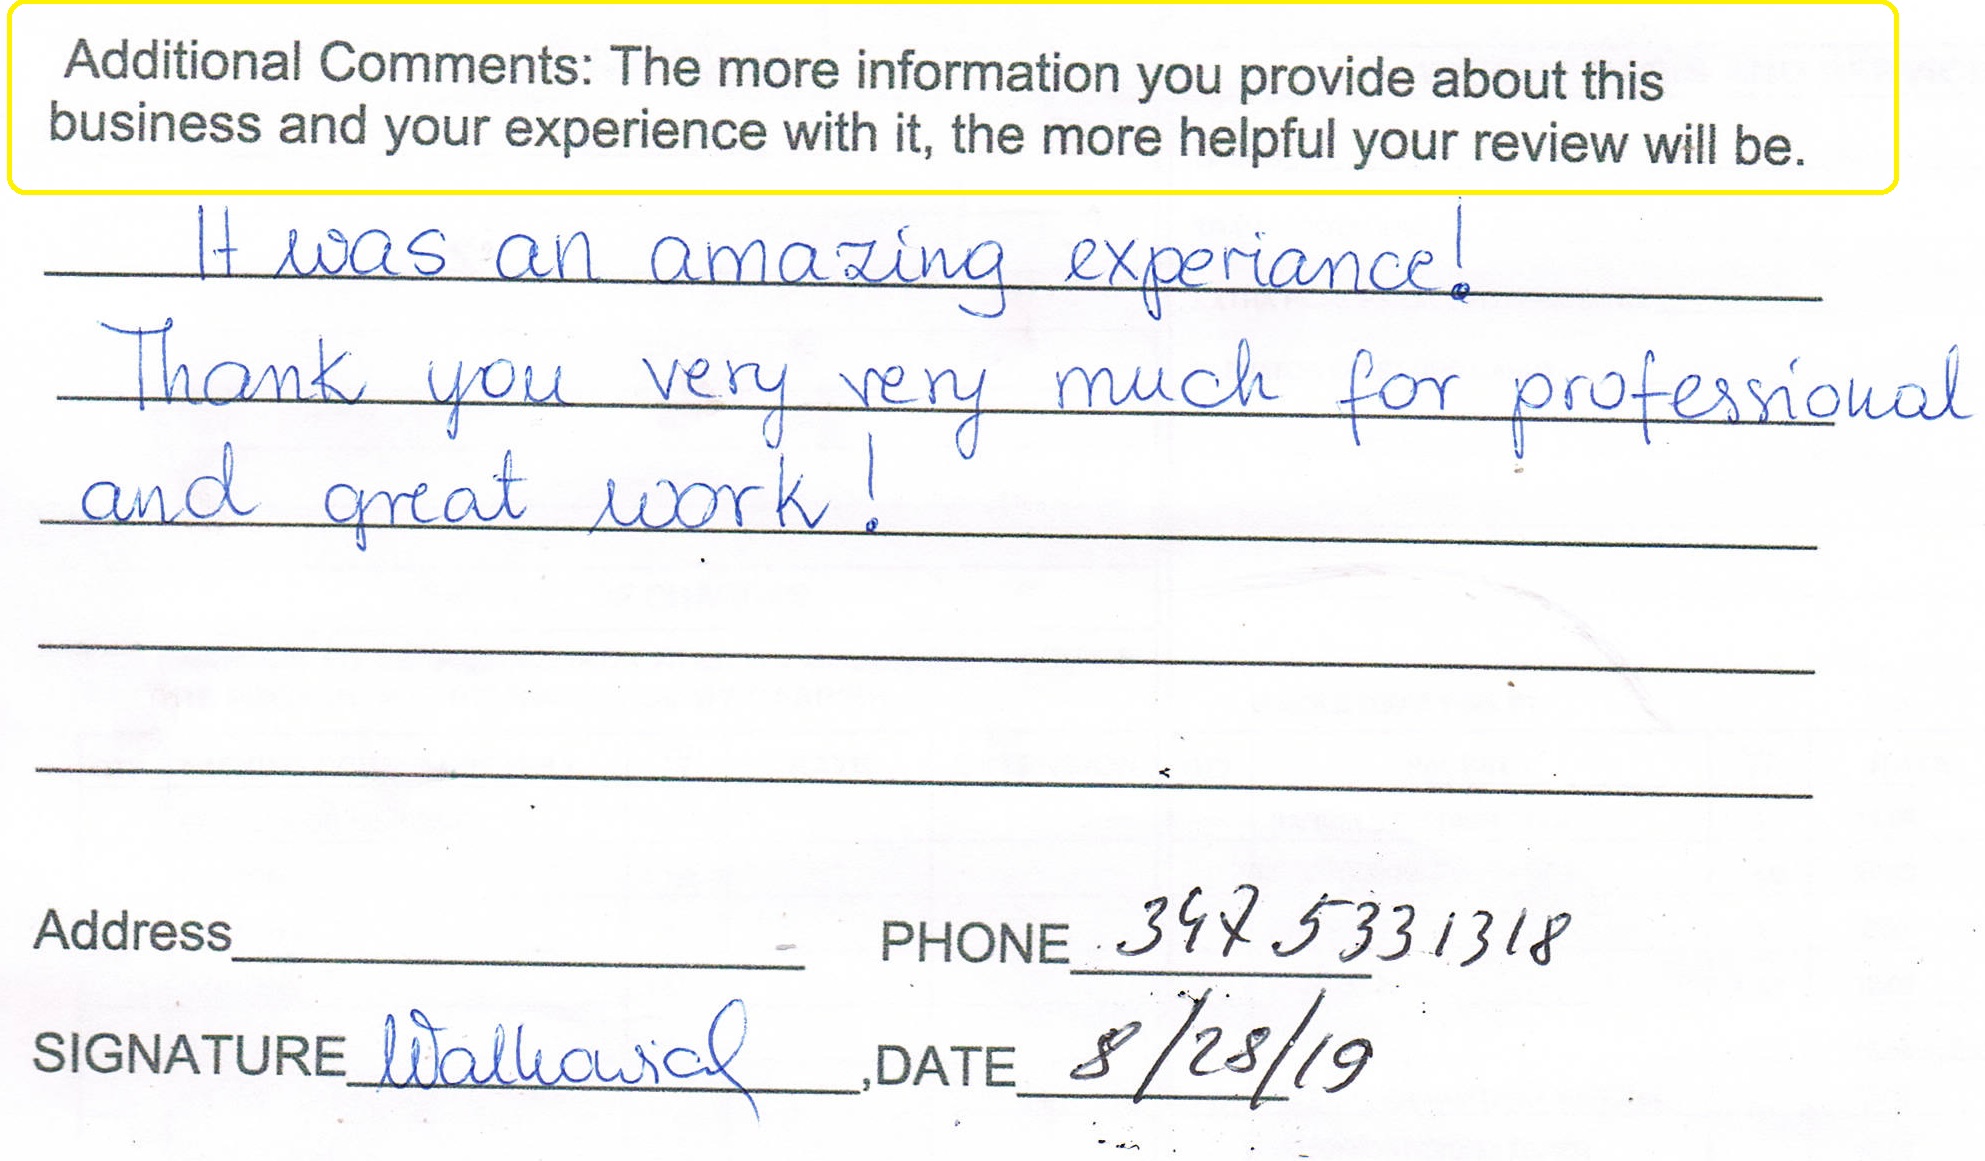 Additional Comments: The more information you provide about this
business and your experience with it, the more helpful your review will be.
It was an amazing experiance!
Thank you very very much for professional
and great work!
Address PHONE 347 5331318
SIGNATURE ,DATE 8/28/19